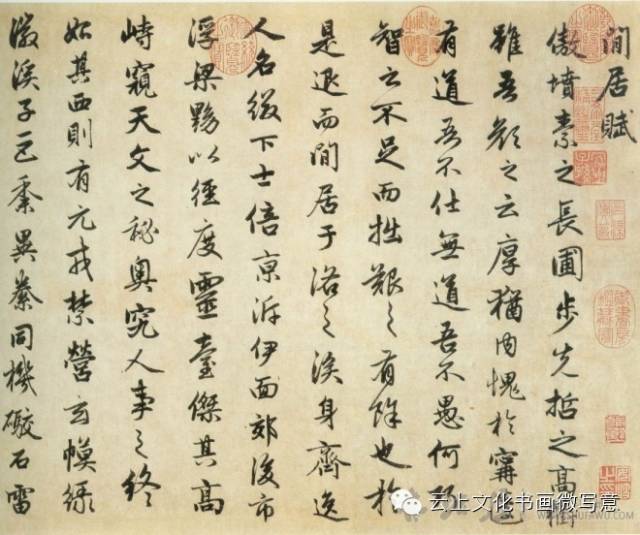 閒居賦
傲墳素之長圃步先哲之高衢
雖吾顏之云厚猶内愧於甯蘧
有道吾不仕無道吾不愚何巧
智之不足而拙艱之有餘也於
是退而閒居于洛之涘身齊逸
人名綴下士倍京泝伊面郊後市
浮梁黝以徑度靈臺傑其高
峙窺天文之秘奧究人事之終
始其西則有元戎禁營玄幙綠
徽溪子巨黍異絭同機礮石雷
云上文化书画微写意